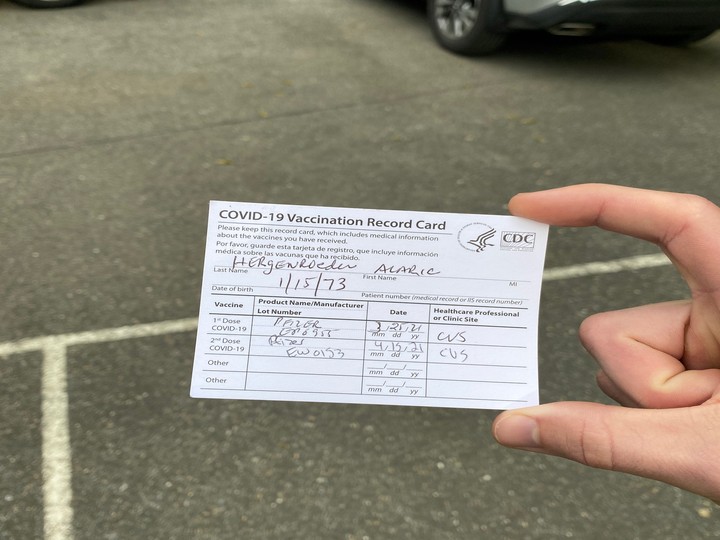 COVID-19 Vaccination Record Card
Please keep this record card, which includes medical information
about the vaccines you have received.
Por favor, guarde esta tarjeta de registro, que incluye información
médica sobre las vacunas que ha recibido.
CDC
HERGENROEDER ALARIC
Last Name First Name MI
1/15/73
Date of birth Patient number (medical record or IIS record number)
Vaccine Product Name/Manufacturer Date Healthcare Professional
Lot Number or Clinic Site
1st Dose PFIZER CVS
COVID-19 mm dd yy
2nd Dose Pfizer 4/15/21 CVS
COVID-19 EW0153 mm dd yy
Other
mm dd yy
Other
mm dd yy